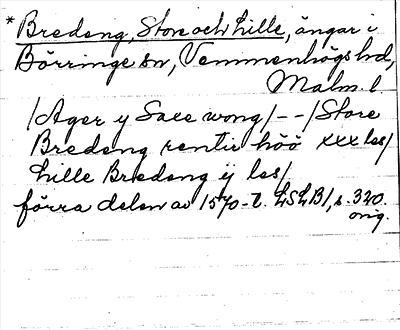 *Bredeng, Store och Lille, ängar i
Börringe sn, Vemmenhögs hd,
Malm. l.
/Ager y Saxe wong/--/Store
Bredeng rentir höö xxx les/
Lille Bredeng ij les/
förra delen av 1570-t. LSLB1, s. 320.
orig.